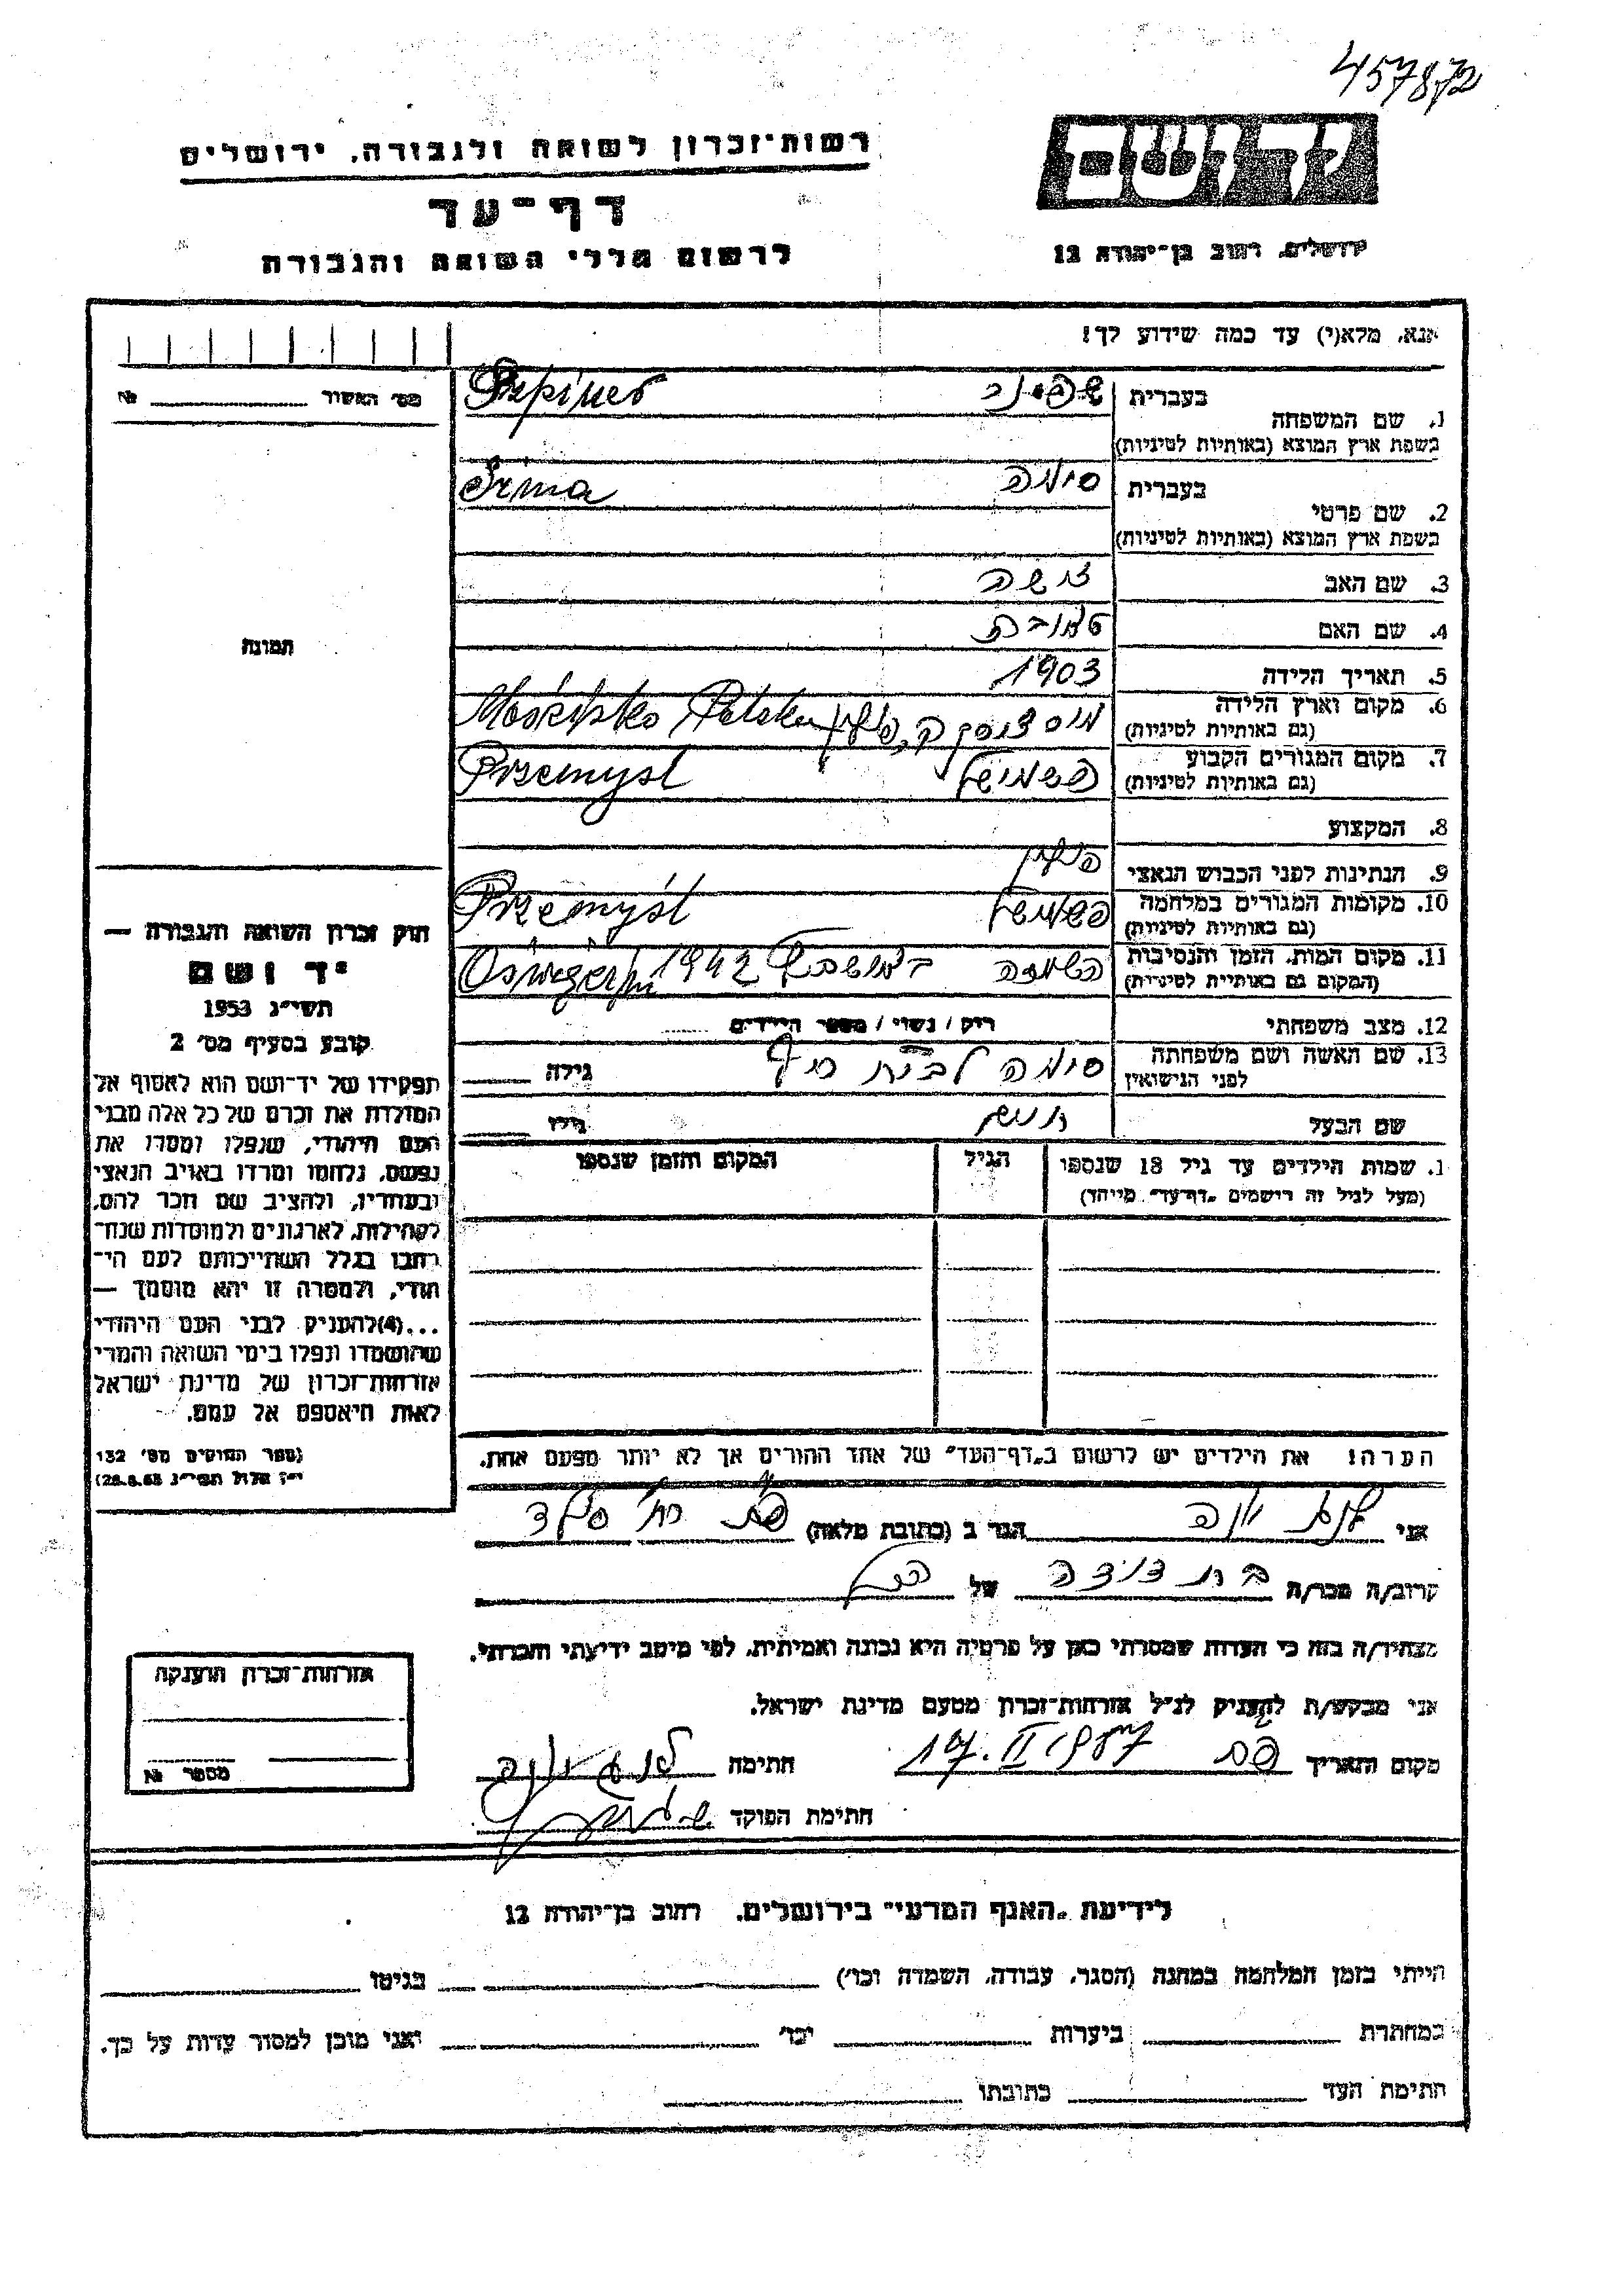 457872
רשות־זכרון לשואה ולגבורה, ירושלים
דף־עד
לרשום חללי השואה והגבורה
יד ושם
ירושלים, רחוב בן־יהודה 12
אנא, מלא(י) עד כמה שידוע לך!
מס׳ האשור № 
1. שם המשפחה בעברית שפינר Szpiner
בשפת ארץ המוצא (באותיות לטיניות)
2. שם פרטי בעברית סימה Sima
בשפת ארץ המוצא (באותיות לטיניות)
3. שם האב זושה
4. שם האם
5. תאריך הלידה 1903
6. מקום וארץ הלידה
(גם באותיות לטיניות)
7. מקום המגורים הקבוע פשמישל Przemysl
(גם באותיות לטיניות)
8. המקצוע
9. הנתינות לפני הכבוש הנאצי פולין
10. מקומות המגורים במלחמה פשמישל Przemyśl
(גם באותיות לטיניות)
11. מקום המות, הזמן והנסיבות השמדה 1942
(המקום גם באותיות לטיניות)
12. מצב משפחתי רוק / נשוי / מספר הילדים
13. שם האשה ושם משפחתה סימה לבית גילה
לפני הנישואין
שם הבעל גילו
1. שמות הילדים עד גיל 18 שנספו הגיל המקום והזמן שנספו
(מעל לגיל זה רושמים „דף־עד״ מיוחד)
תמונה
חוק זכרון השואה והגבורה —
יד ושם
תשי״ג 1953
קובע בסעיף מס׳ 2
תפקידו של יד־ושם הוא לאסוף אל
המולדת את זכרם של כל אלה מבני
העם היהודי, שנפלו ומסרו את
נפשם, נלחמו ומרדו באויב הנאצי
ובעוזריו, ולהציב שם וזכר להם,
לקהילות, לארגונים ולמוסדות שנח־
רבו בגלל השתייכותם לעם הי־
הודי, ולמטרה זו יהא מוסמך —
...(4) להעניק לבני העם היהודי
שהושמדו ונפלו בימי השואה והמרי
אזרחות־זכרון של מדינת ישראל
לאות היאספם אל עמם.
(ספר החוקים מס׳ 132
י״ז אלול תשי״ג 28.8.53)
הערה! את הילדים יש לרשום ב„דף־העד״ של אחד ההורים אך לא יותר מפעם אחת.
אני יונה הגר ב (כתובת מלאה)
קרוב/ה מכר/ה בת דודה של הנ״ל
מצהיר/ה בזה כי העדות שמסרתי כאן על פרטיה היא נכונה ואמיתית, לפי מיטב ידיעתי והכרתי.
אני מבקש/ת להעניק לנ״ל אזרחות־זכרון מטעם מדינת ישראל.
מקום ותאריך 17.II.1957 חתימה
חתימת הפוקד
אזרחות־זכרון הוענקה
מספר №
לידיעת „האגף המדעי״ בירושלים, רחוב בן־יהודה 12
הייתי בזמן המלחמה במחנה (הסגר, עבודה, השמדה וכו׳) בגיטו
במחתרת ביערות וכו׳ ואני מוכן למסור עדות על כך.
חתימת העד כתובתו